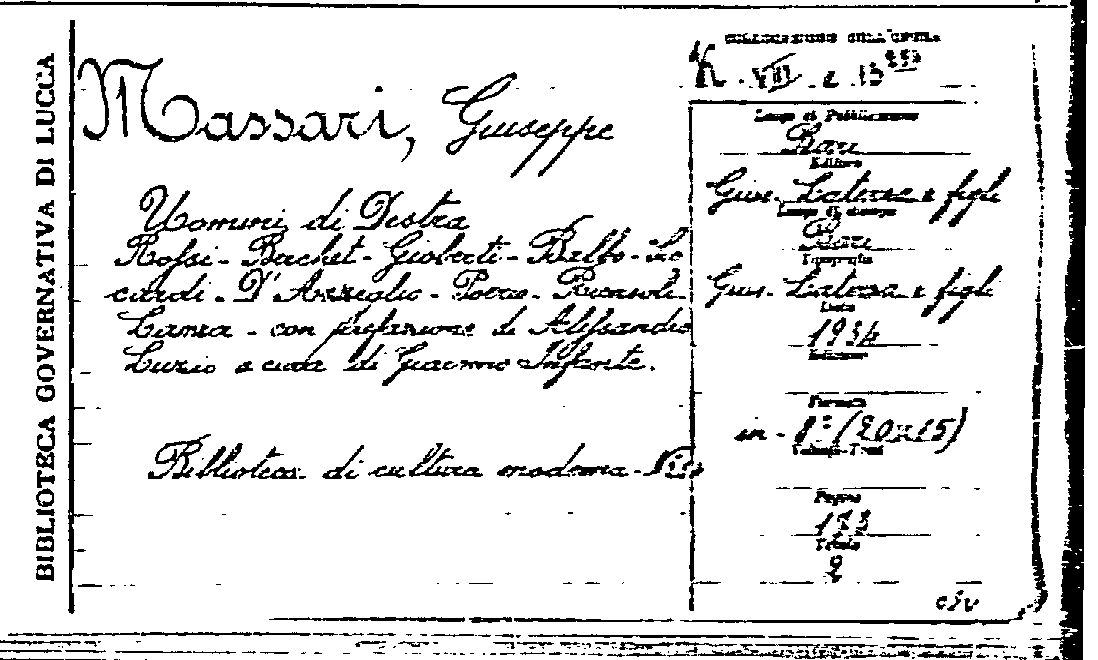 BIBLIOTECA GOVERNATIVA DI LUCCA
COLLOCAZIONE DELL'OPERA
K. VII. e. 13
Massari, Giuseppe
Uomini di Destra
Rossi - Bachet - Gioberti - Balbo -
cardi - D'Azeglio - Poerio - Ricasoli
Lanza - con prefazione di Alessandro
Luzio a cura di Giacomo Infante.
Biblioteca di cultura moderna -
Luogo di Pubblicazione
Bari
Editore
Gius. Laterza e figli
Luogo di stampa
Bari
Tipografia
Gius. Laterza e figli
Data
1934
Edizione
Formato
in - 8º (20x15)
Volumi-Tomi
Pagine
Tavole
2